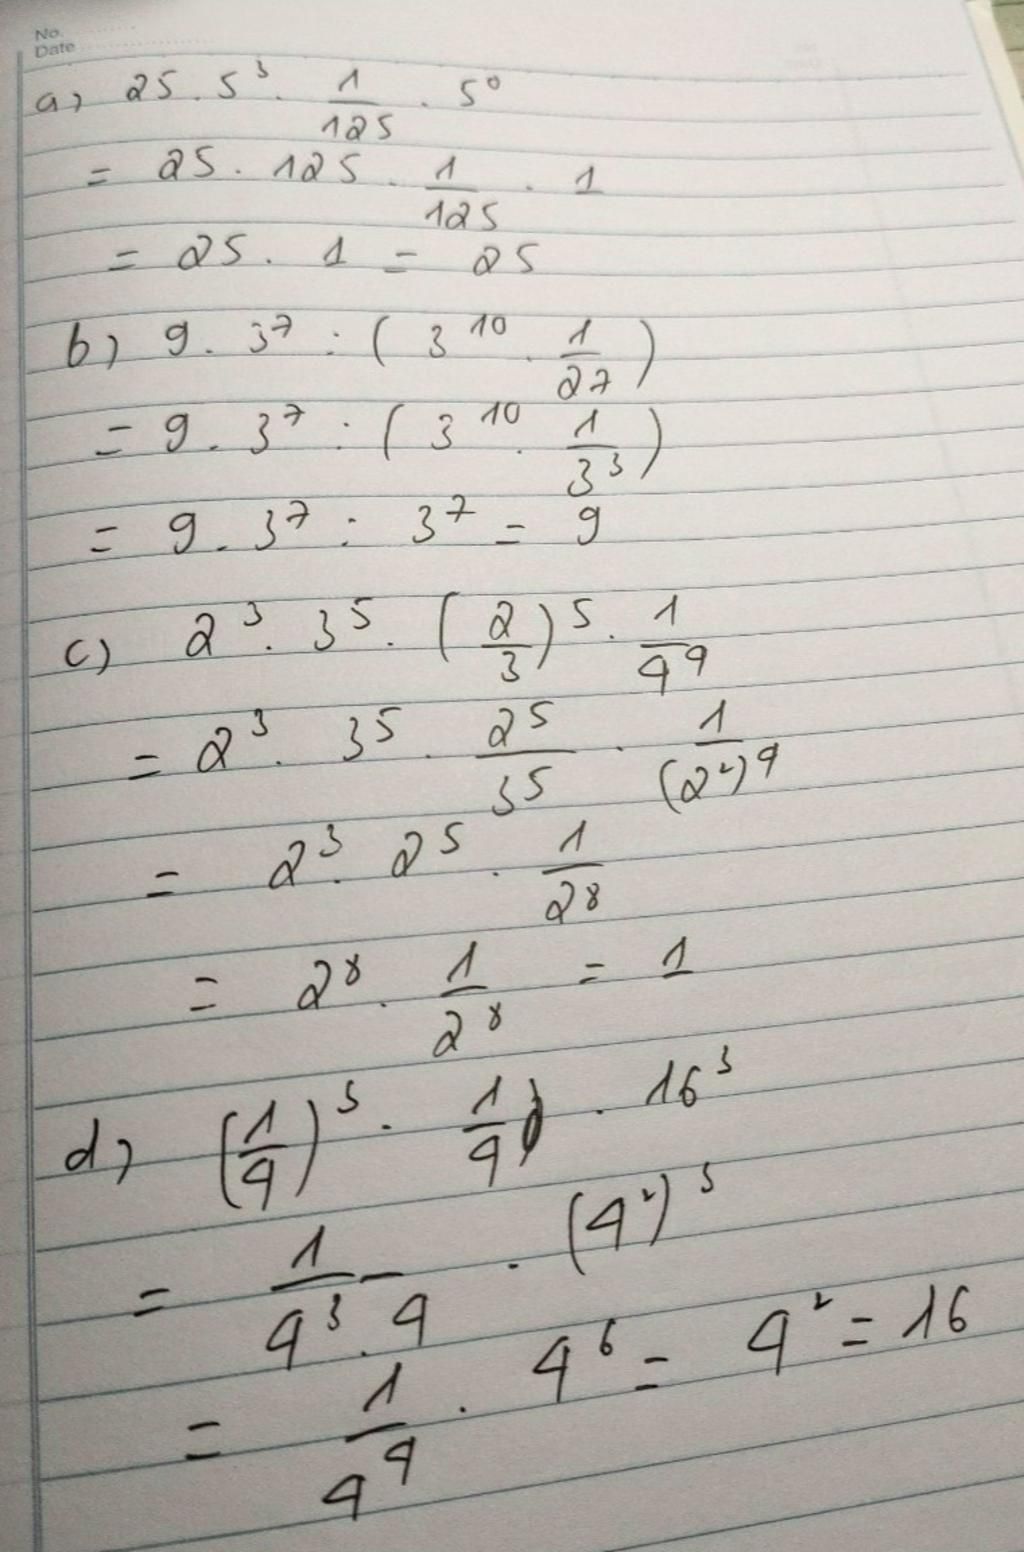 No.
Date
a) 25 . 5³ . 1/125 . 5⁰
= 25 . 125 . 1/125 . 1
= 25 . 1 = 25
b) 9 . 3⁷ : ( 3¹⁰ . 1/27 )
= 9 . 3⁷ : ( 3¹⁰ . 1/3³ )
= 9 . 3⁷ : 3⁷ = 9
c) 2³ . 3⁵ . (2/3)⁵ . 1/4⁴
= 2³ . 3⁵ . 2⁵/3⁵ . 1/(2²)⁴
= 2³ . 2⁵ . 1/2⁸
= 2⁸ . 1/2⁸ = 1
d) (1/4)³ . 1/4 . 16³
= 1/4³ . 4 . (4²)³
= 1/4⁴ . 4⁶ = 4² = 16